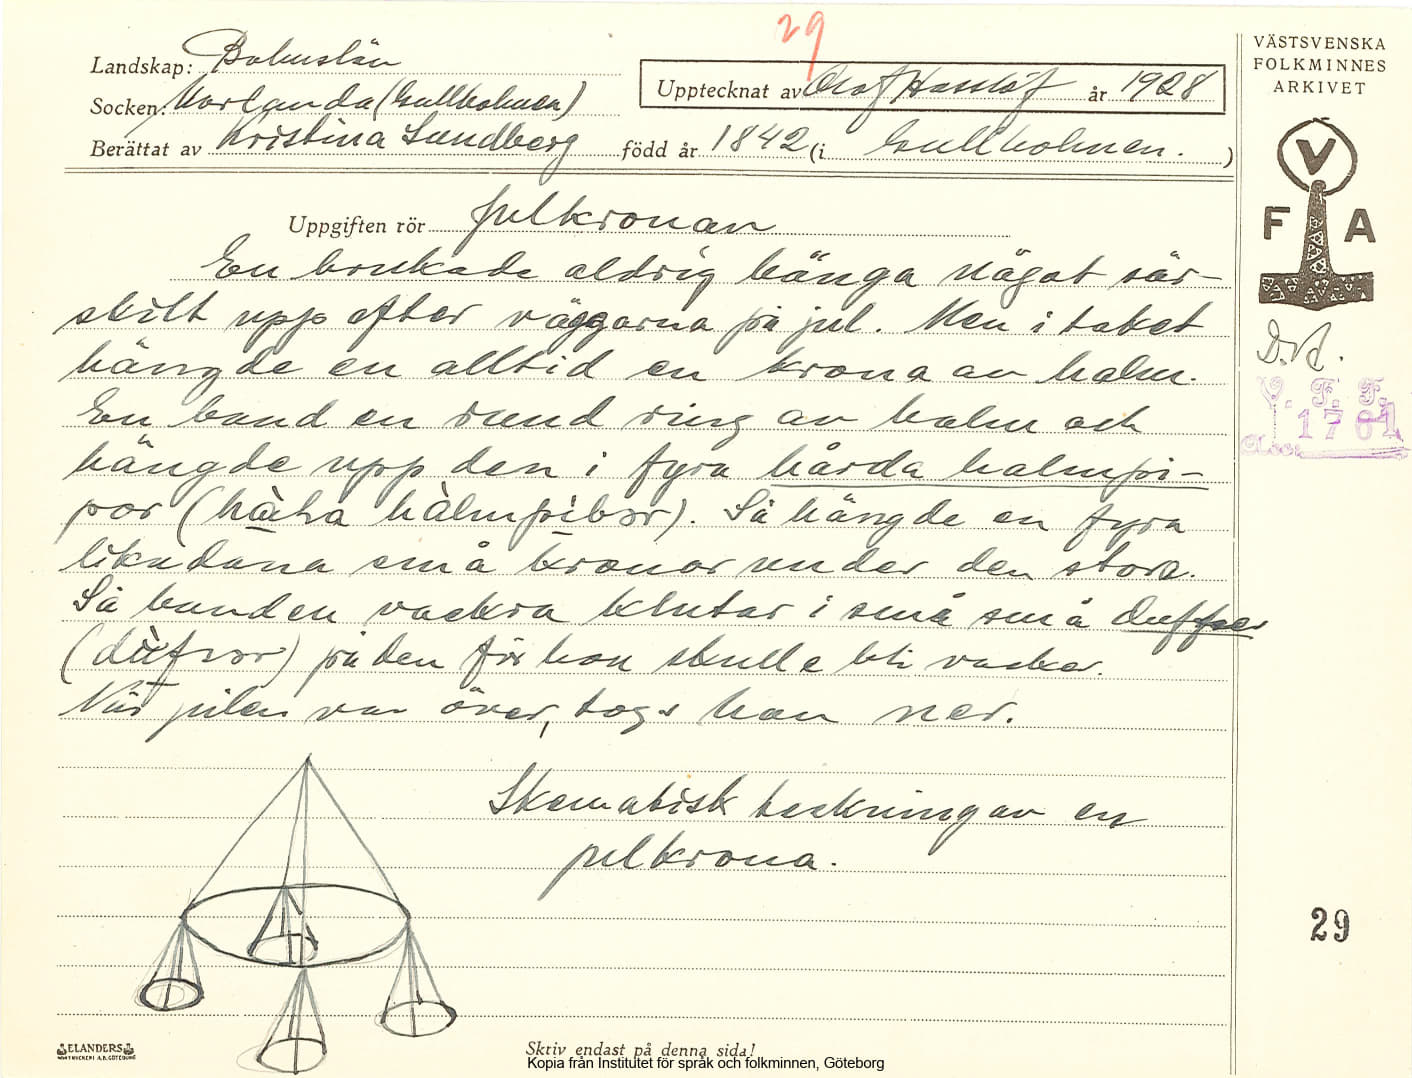 29
Landskap: Bohuslän
Upptecknat av Olof Hasslöf år 1928
Socken: Morlanda (Gullholmen)
Berättat av Kristina Lundberg född år 1842 (i Gullholmen. )
VÄSTSVENSKA
FOLKMINNES
ARKIVET
V
F A
Uppgiften rör julkronan
En brukade aldrig hänga något sär-
skilt upp efter väggarna på jul. Men i taket
hängde en alltid en krona av halm.
En band en rund ring av halm och
hängde upp den i fyra hårda halmpi-
por ( hàlmpibər). Så hängde en fyra
likadana små kronor under den stora.
Så banden vackra klutar i små små duffser
(dùfsər) på den för han skulle bli vacker.
När julen var över, togs han ner.
Skematisk teckning av en
julkrona.
V. F. F.
1701
Acc.
29
ELANDERS
BOKTRYCKERI A.B. GÖTEBORG
Skriv endast på denna sida!
Kopia från Institutet för språk och folkminnen, Göteborg